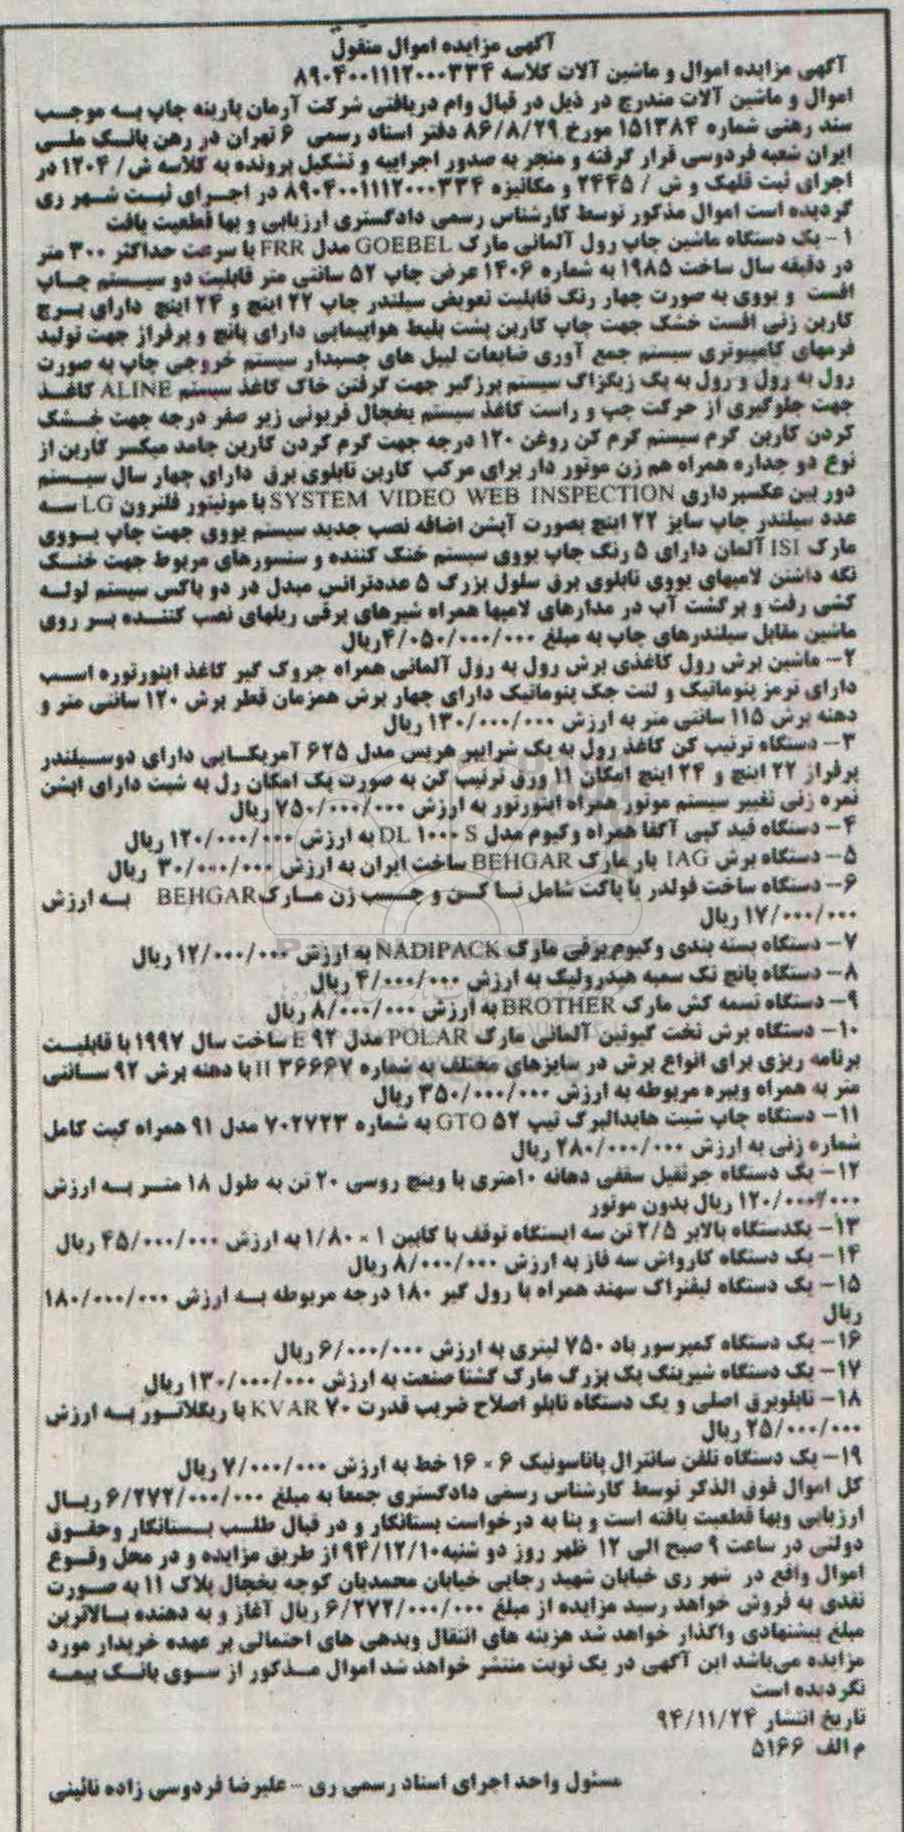 آگهی مزایده اموال منقول
آگهی مزایده اموال و ماشین آلات کلاسه ۸۹۰۴۰۰۱۱۱۲۰۰۰۳۳۴
اموال و ماشین آلات مندرج در ذیل در قبال وام دریافتی شرکت آرمان پارینه چاپ به موجب
سند رهنی شماره ۱۵۱۳۸۴ مورخ ۸۶/۸/۲۹ دفتر اسناد رسمی ۶ تهران در رهن بانک ملی
ایران شعبه فردوسی قرار گرفته و منجر به صدور اجراییه و تشکیل پرونده به کلاسه ش/ ۱۲۰۴ در
اجرای ثبت قلهک و ش / ۲۴۴۵ و مکانیزه ۸۹۰۴۰۰۱۱۱۲۰۰۰۳۳۴ در اجرای ثبت شهر ری
گردیده است اموال مذکور توسط کارشناس رسمی دادگستری ارزیابی و بها قطعیت یافت
۱ - یک دستگاه ماشین چاپ رول آلمانی مارک GOEBEL مدل FRR با سرعت حداکثر ۳۰۰ متر
در دقیقه سال ساخت ۱۹۸۵ به شماره ۱۴۰۶ عرض چاپ ۵۲ سانتی متر قابلیت دو سیستم چاپ
افست و یووی به صورت چهار رنگ قابلیت تعویض سیلندر چاپ ۲۲ اینچ و ۲۴ اینچ دارای برج
کاربن زنی افست خشک جهت چاپ کاربن پشت بلیط هواپیمایی دارای پانچ و پرفراژ جهت تولید
فرمهای کامپیوتری سیستم جمع آوری ضایعات لیبل های چسبدار سیستم خروجی چاپ به صورت
رول به رول و رول به پک زیگزاگ سیستم پرزگیر جهت گرفتن خاک کاغذ سیستم ALINE کاغذ
جهت جلوگیری از حرکت چپ و راست کاغذ سیستم یخچال فریونی زیر صفر درجه جهت خشک
کردن کاربن گرم سیستم گرم کن روغن ۱۲۰ درجه جهت گرم کردن کاربن جامد میکسر کاربن از
نوع دو جداره همراه هم زن موتور دار برای مرکب کاربن تابلوی برق دارای چهار سال سیستم
دور بین عکسبرداری SYSTEM VIDEO WEB INSPECTION با مونیتور فلترون LG سه
عدد سیلندر چاپ سایز ۲۲ اینچ بصورت آپشن اضافه نصب جدید سیستم یووی جهت چاپ یووی
مارک ISI آلمان دارای ۵ رنگ چاپ یووی سیستم خنک کننده و سنسورهای مربوط جهت خنک
نگه داشتن لامپهای یووی تابلوی برق سلول بزرگ ۵ عددترانس مبدل در دو باکس سیستم لوله
کشی رفت و برگشت آب در مدارهای لامپها همراه شیرهای برقی ریلهای نصب کننده بر روی
ماشین مقابل سیلندرهای چاپ به مبلغ ۴/۰۵۰/۰۰۰/۰۰۰ریال
۲- ماشین برش رول کاغذی برش رول به رول آلمانی همراه جروک گیر کاغذ اینورتوره اسب
دارای ترمز پنوماتیک و لنت جک پنوماتیک دارای چهار برش همزمان قطر برش ۱۲۰ سانتی متر و
دهنه برش ۱۱۵ سانتی متر به ارزش ۱۳۰/۰۰۰/۰۰۰ ریال
۳- دستگاه ترتیب کن کاغذ رول به پک شرایبر هریس مدل ۶۲۵ آمریکایی دارای دوسیلندر
پرفراژ ۲۲ اینچ و ۲۴ اینچ امکان ۱۱ ورق ترتیب کن به صورت پک امکان رل به شیت دارای اپشن
نمره زنی تغییر سیستم موتور همراه اینورتور به ارزش ۷۵۰/۰۰۰/۰۰۰ ریال
۴- دستگاه فید کپی آگفا همراه وکیوم مدل DL ۱۰۰۰ S به ارزش ۱۲۰/۰۰۰/۰۰۰ ریال
۵- دستگاه برش IAG بار مارک BEHGAR ساخت ایران به ارزش ۳۰/۰۰۰/۰۰۰ ریال
۶- دستگاه ساخت فولدر یا پاکت شامل تا کن و چسب زن مارکBEHGAR به ارزش
۱۷/۰۰۰/۰۰۰ ریال
۷- دستگاه بسته بندی وکیوم برقی مارک NADIPACK به ارزش ۱۲/۰۰۰/۰۰۰ ریال
۸- دستگاه پانچ تک سمبه هیدرولیک به ارزش ۴/۰۰۰/۰۰۰ ریال
۹- دستگاه تسمه کش مارک BROTHER به ارزش ۸/۰۰۰/۰۰۰ ریال
۱۰- دستگاه برش تخت گیوتین آلمانی مارک POLAR مدل E ۹۲ ساخت سال ۱۹۹۷ با قابلیت
برنامه ریزی برای انواع برش در سایزهای مختلف به شماره ۳۶۶۶۷ II با دهنه برش ۹۲ سانتی
متر به همراه ویبره مربوطه به ارزش ۳۵۰/۰۰۰/۰۰۰ ریال
۱۱- دستگاه چاپ شیت هایدالبرگ تیپ GTO ۵۲ به شماره ۷۰۲۷۲۳ مدل ۹۱ همراه کیت کامل
شماره زنی به ارزش ۲۸۰/۰۰۰/۰۰۰ ریال
۱۲- یک دستگاه جرثقیل سقفی دهانه ۱۰متری با وینچ روسی ۲۰ تن به طول ۱۸ متر به ارزش
۱۲۰/۰۰۰/۰۰۰ ریال بدون موتور
۱۳- یکدستگاه بالابر ۲/۵ تن سه ایستگاه توقف با کابین ۱ × ۱/۸۰ به ارزش ۴۵/۰۰۰/۰۰۰ ریال
۱۴- یک دستگاه کارواش سه فاز به ارزش ۸/۰۰۰/۰۰۰ ریال
۱۵- یک دستگاه لیفتراک سهند همراه با رول گیر ۱۸۰ درجه مربوطه به ارزش ۱۸۰/۰۰۰/۰۰۰
ریال
۱۶- یک دستگاه کمپرسور باد ۷۵۰ لیتری به ارزش ۶/۰۰۰/۰۰۰ ریال
۱۷- یک دستگاه شیرینک پک بزرگ مارک گشتا صنعت به ارزش ۱۳۰/۰۰۰/۰۰۰ ریال
۱۸- تابلوبرق اصلی و یک دستگاه تابلو اصلاح ضریب قدرت ۷۰ KVAR با ریگلاتور به ارزش
۲۵/۰۰۰/۰۰۰ ریال
۱۹- یک دستگاه تلفن سانترال پاناسونیک ۶ × ۱۶ خط به ارزش ۷/۰۰۰/۰۰۰ ریال
کل اموال فوق الذکر توسط کارشناس رسمی دادگستری جمعا به مبلغ ۶/۲۷۲/۰۰۰/۰۰۰ ریال
ارزیابی وبها قطعیت یافته است و بنا به درخواست بستانکار و در قبال طلب بستانکار وحقوق
دولتی در ساعت ۹ صبح الی ۱۲ ظهر روز دو شنبه۹۴/۱۲/۱۰ از طریق مزایده و در محل وقوع
اموال واقع در شهر ری خیابان شهید رجایی خیابان محمدیان کوچه یخچال پلاک ۱۱ به صورت
نقدی به فروش خواهد رسید مزایده از مبلغ ۶/۲۷۲/۰۰۰/۰۰۰ ریال آغاز و به دهنده بالاترین
مبلغ پیشنهادی واگذار خواهد شد هزینه های انتقال وبدهی های احتمالی بر عهده خریدار مورد
مزایده می‌باشد این آگهی در یک نوبت منتشر خواهد شد اموال مذکور از سوی بانک بیمه
نگردیده است
تاریخ انتشار ۹۴/۱۱/۲۴
م الف ۵۱۶۶
مسئول واحد اجرای اسناد رسمی ری - علیرضا فردوسی زاده نائینی